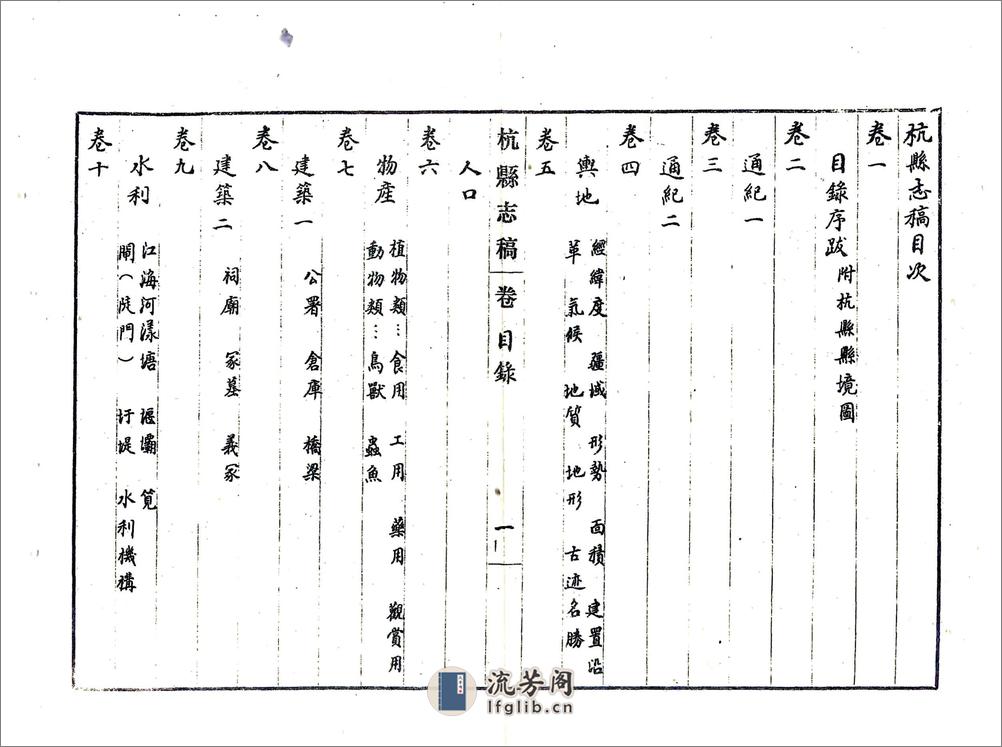 杭縣志稿目次
卷一
目錄序跋 附杭縣縣境圖
卷二
通紀一
卷三
通紀二
卷四
輿地 經緯度 疆域 形勢 面積 建置沿
革 氣候 地質 地形 古迹名勝
卷五
杭縣志稿 卷 目錄 一
人口
卷六
物產 植物類…食用 工用 藥用 觀賞用
動物類…鳥獸 蟲魚
卷七
建築一 公署 倉庫 橋梁
卷八
建築二 祠廟 冢墓 義冢
卷九
水利 江海河漾塘 堰壩 筧
閘(陡門) 圩堤 水利機構
卷十
流芳阁
lfglib.cn